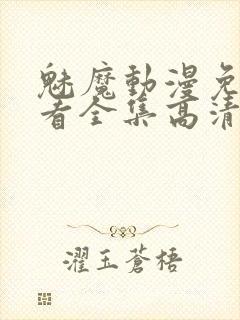 魅魔動漫免
看全集高清
濯玉蒼梧